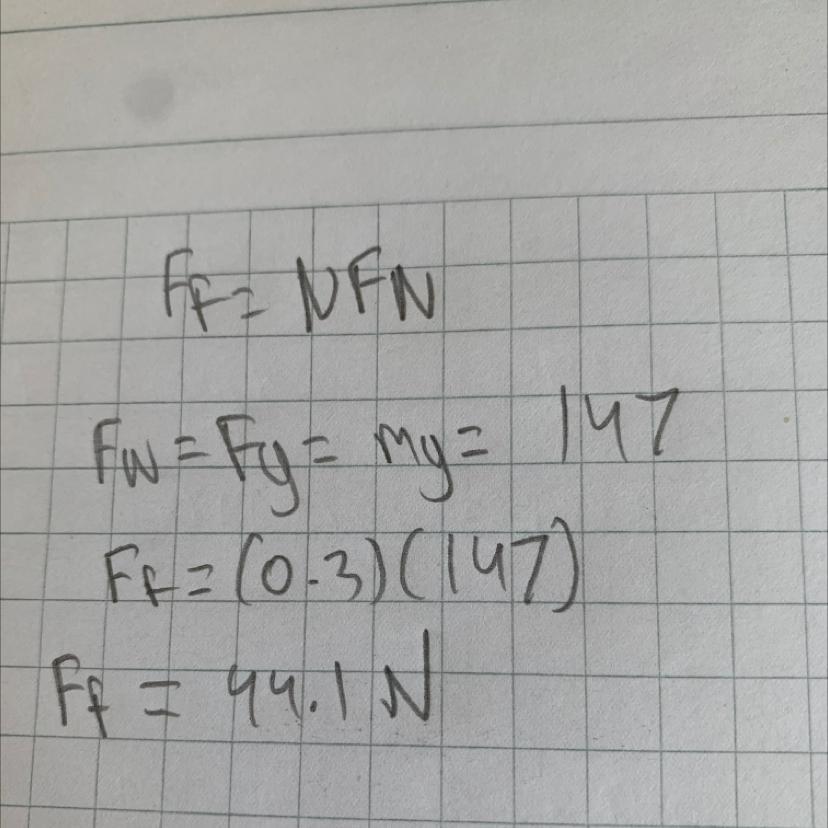 Ff = NFN
FN = Fg = mg = 147
Ff = (0.3)(147)
Ff = 44.1 N